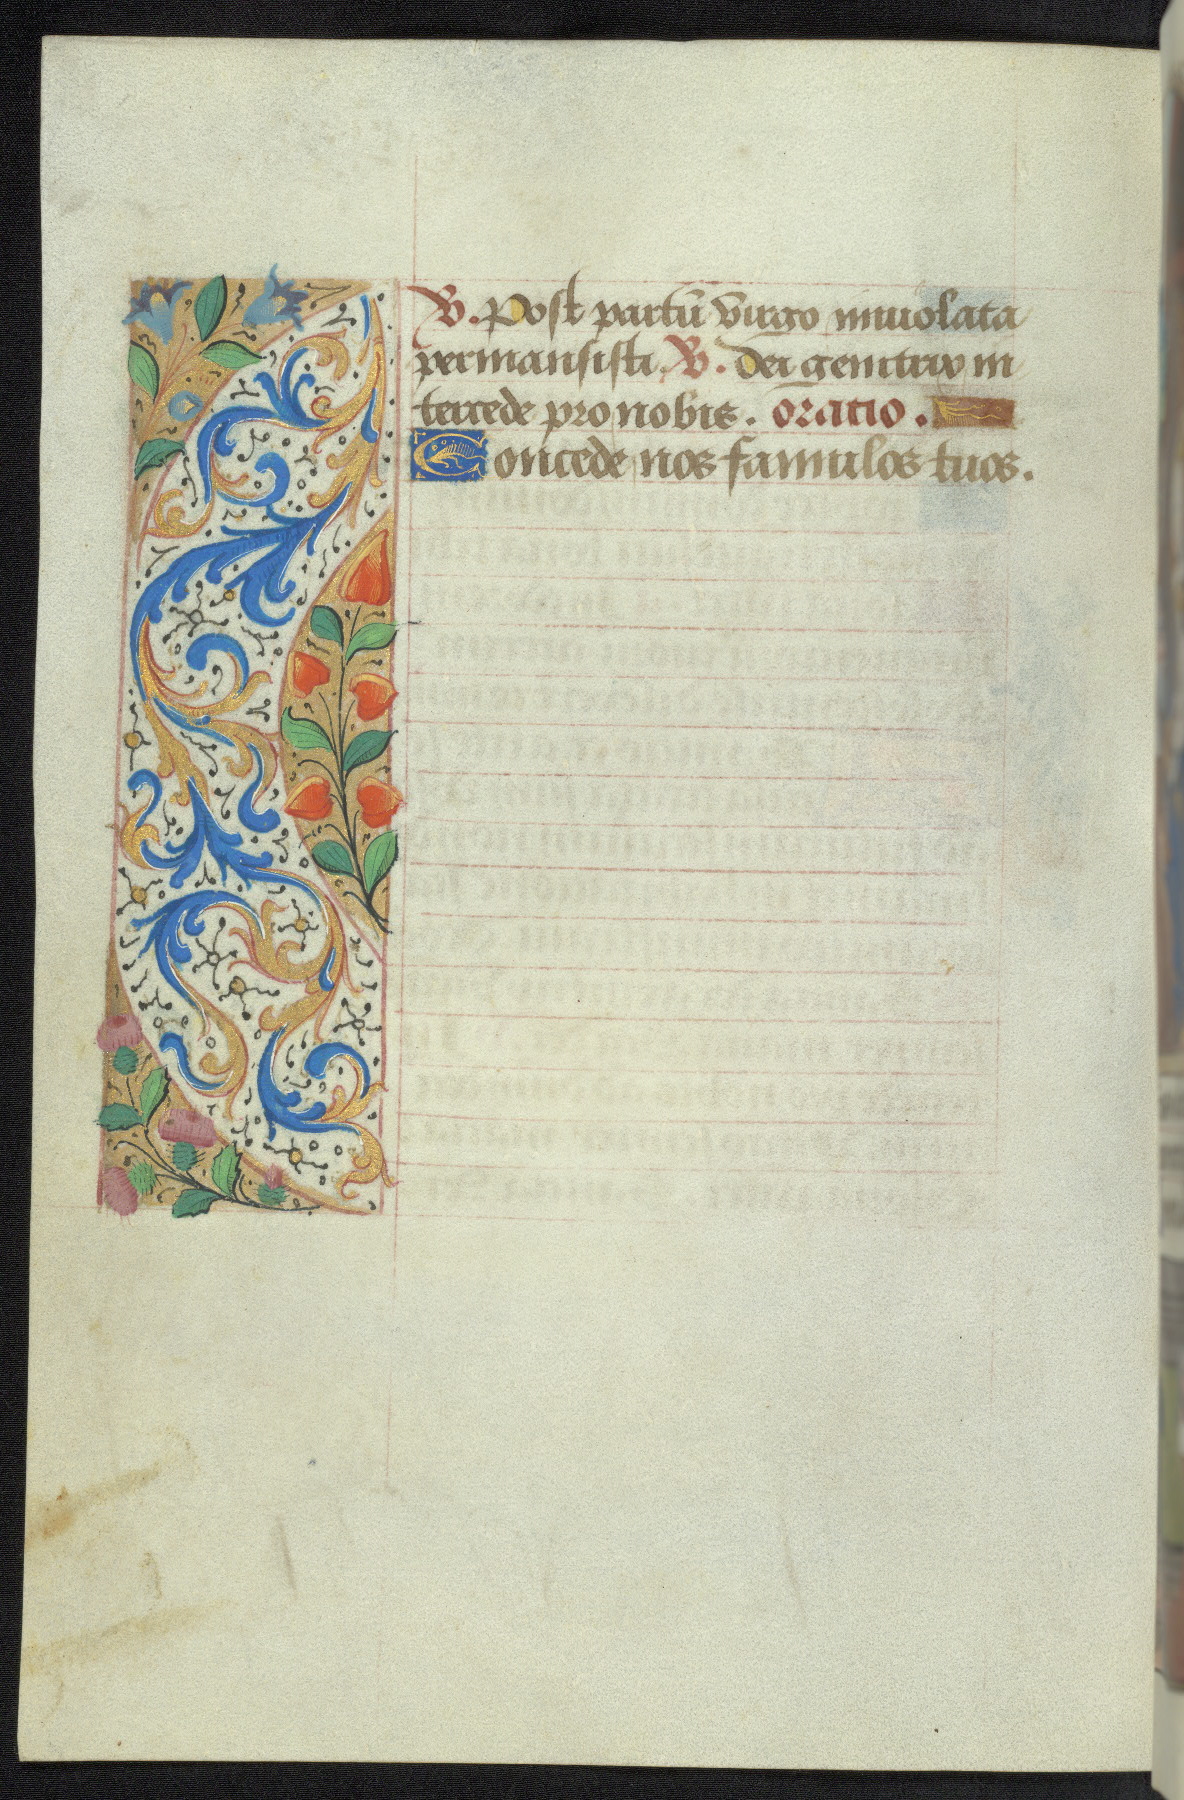 V. Post partū virgo inviolata
permansisti. V. dei genitrix in
tercede pro nobis. oratio.
Concede nos famulos tuos.